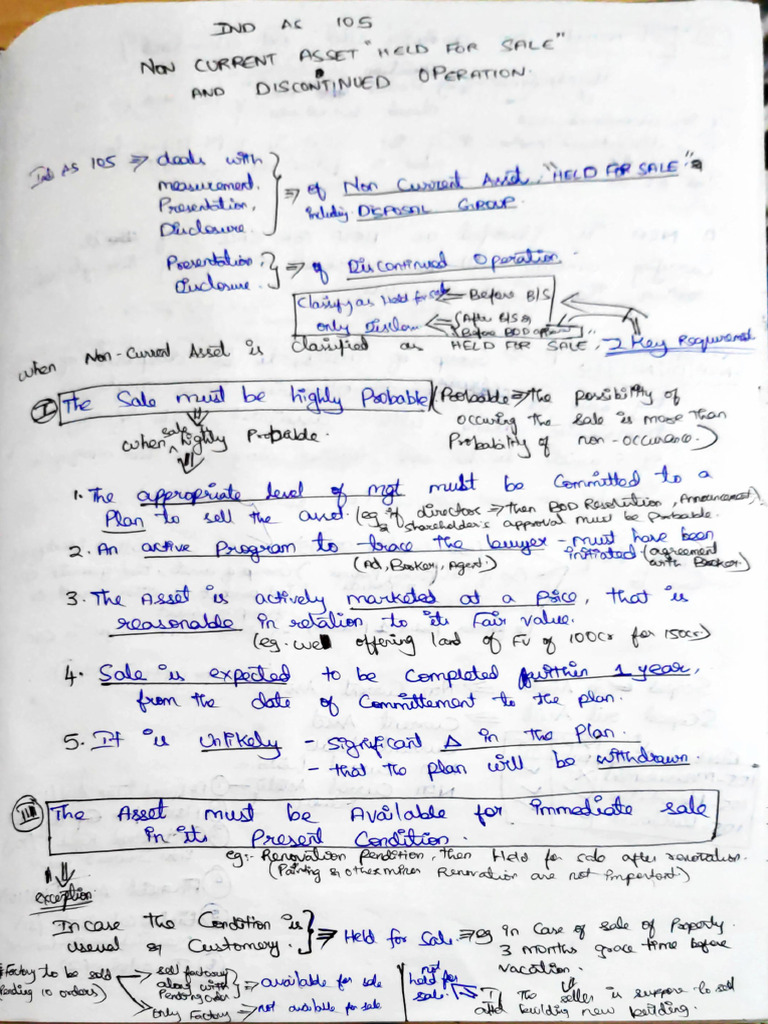 IND AS 105
NON CURRENT ASSET "HELD FOR SALE"
AND DISCONTINUED OPERATION.
Ind AS 105 ⇒ deals with
measurement.
Presentation,
Disclosure
⇒ of Non Current Asset, "HELD FOR SALE"
including DISPOSAL GROUP.
Presentation
Disclosure.
⇒ of Discontinued Operation
Classify as Held for sale ← Before B/S
only Disclosure ← (After B/S &
Before BOD approval)
when Non-Current Asset is Classified as HELD FOR SALE, 2 Key Requirement
I The Sale must be highly Probable (Probable ⇒ the possibility of
occuring the sale is more than
Probability of non-occurence.)
when sale highly Probable.
1. The appropriate level of mgt must be Committed to a
Plan to sell the asset. (eg. if director ⇒ then BOD Resolution, Announcement,
shareholder's approval must be Probable.
2. An active Program to trace the buyer - must have been
initiated (agreement
with Broker.)
(Ad, Broker, Agent.)
3. The Asset is actively marketed at a Price, that is
reasonable in relation to its Fair value.
(eg. we offering land of FV of 100Cr for 150cr)
4. Sale is expected to be Completed within 1 year,
from the date of Committement to the plan.
5. It is Unlikely - Significant Δ in the Plan.
- that the plan will be withdrawn.
The Asset must be Available for immediate sale
in its Present Condition.
eg:- Renovation Pendition, then Held for sale after renovation.
(Painting & other minor Renovation are not important)
exception
In case the Condition is
usual & Customery.
⇒ Held for Sale ⇒ eg In Case of sale of Property.
3 months grace time before
vacation.
Factory to be sold
Pending 10 orders)
sell factory
along with
Pending order
⇒ available for sale
only Factory → not available for sale
not
held for
sale.
The seller is suppose to sell
after building new building.